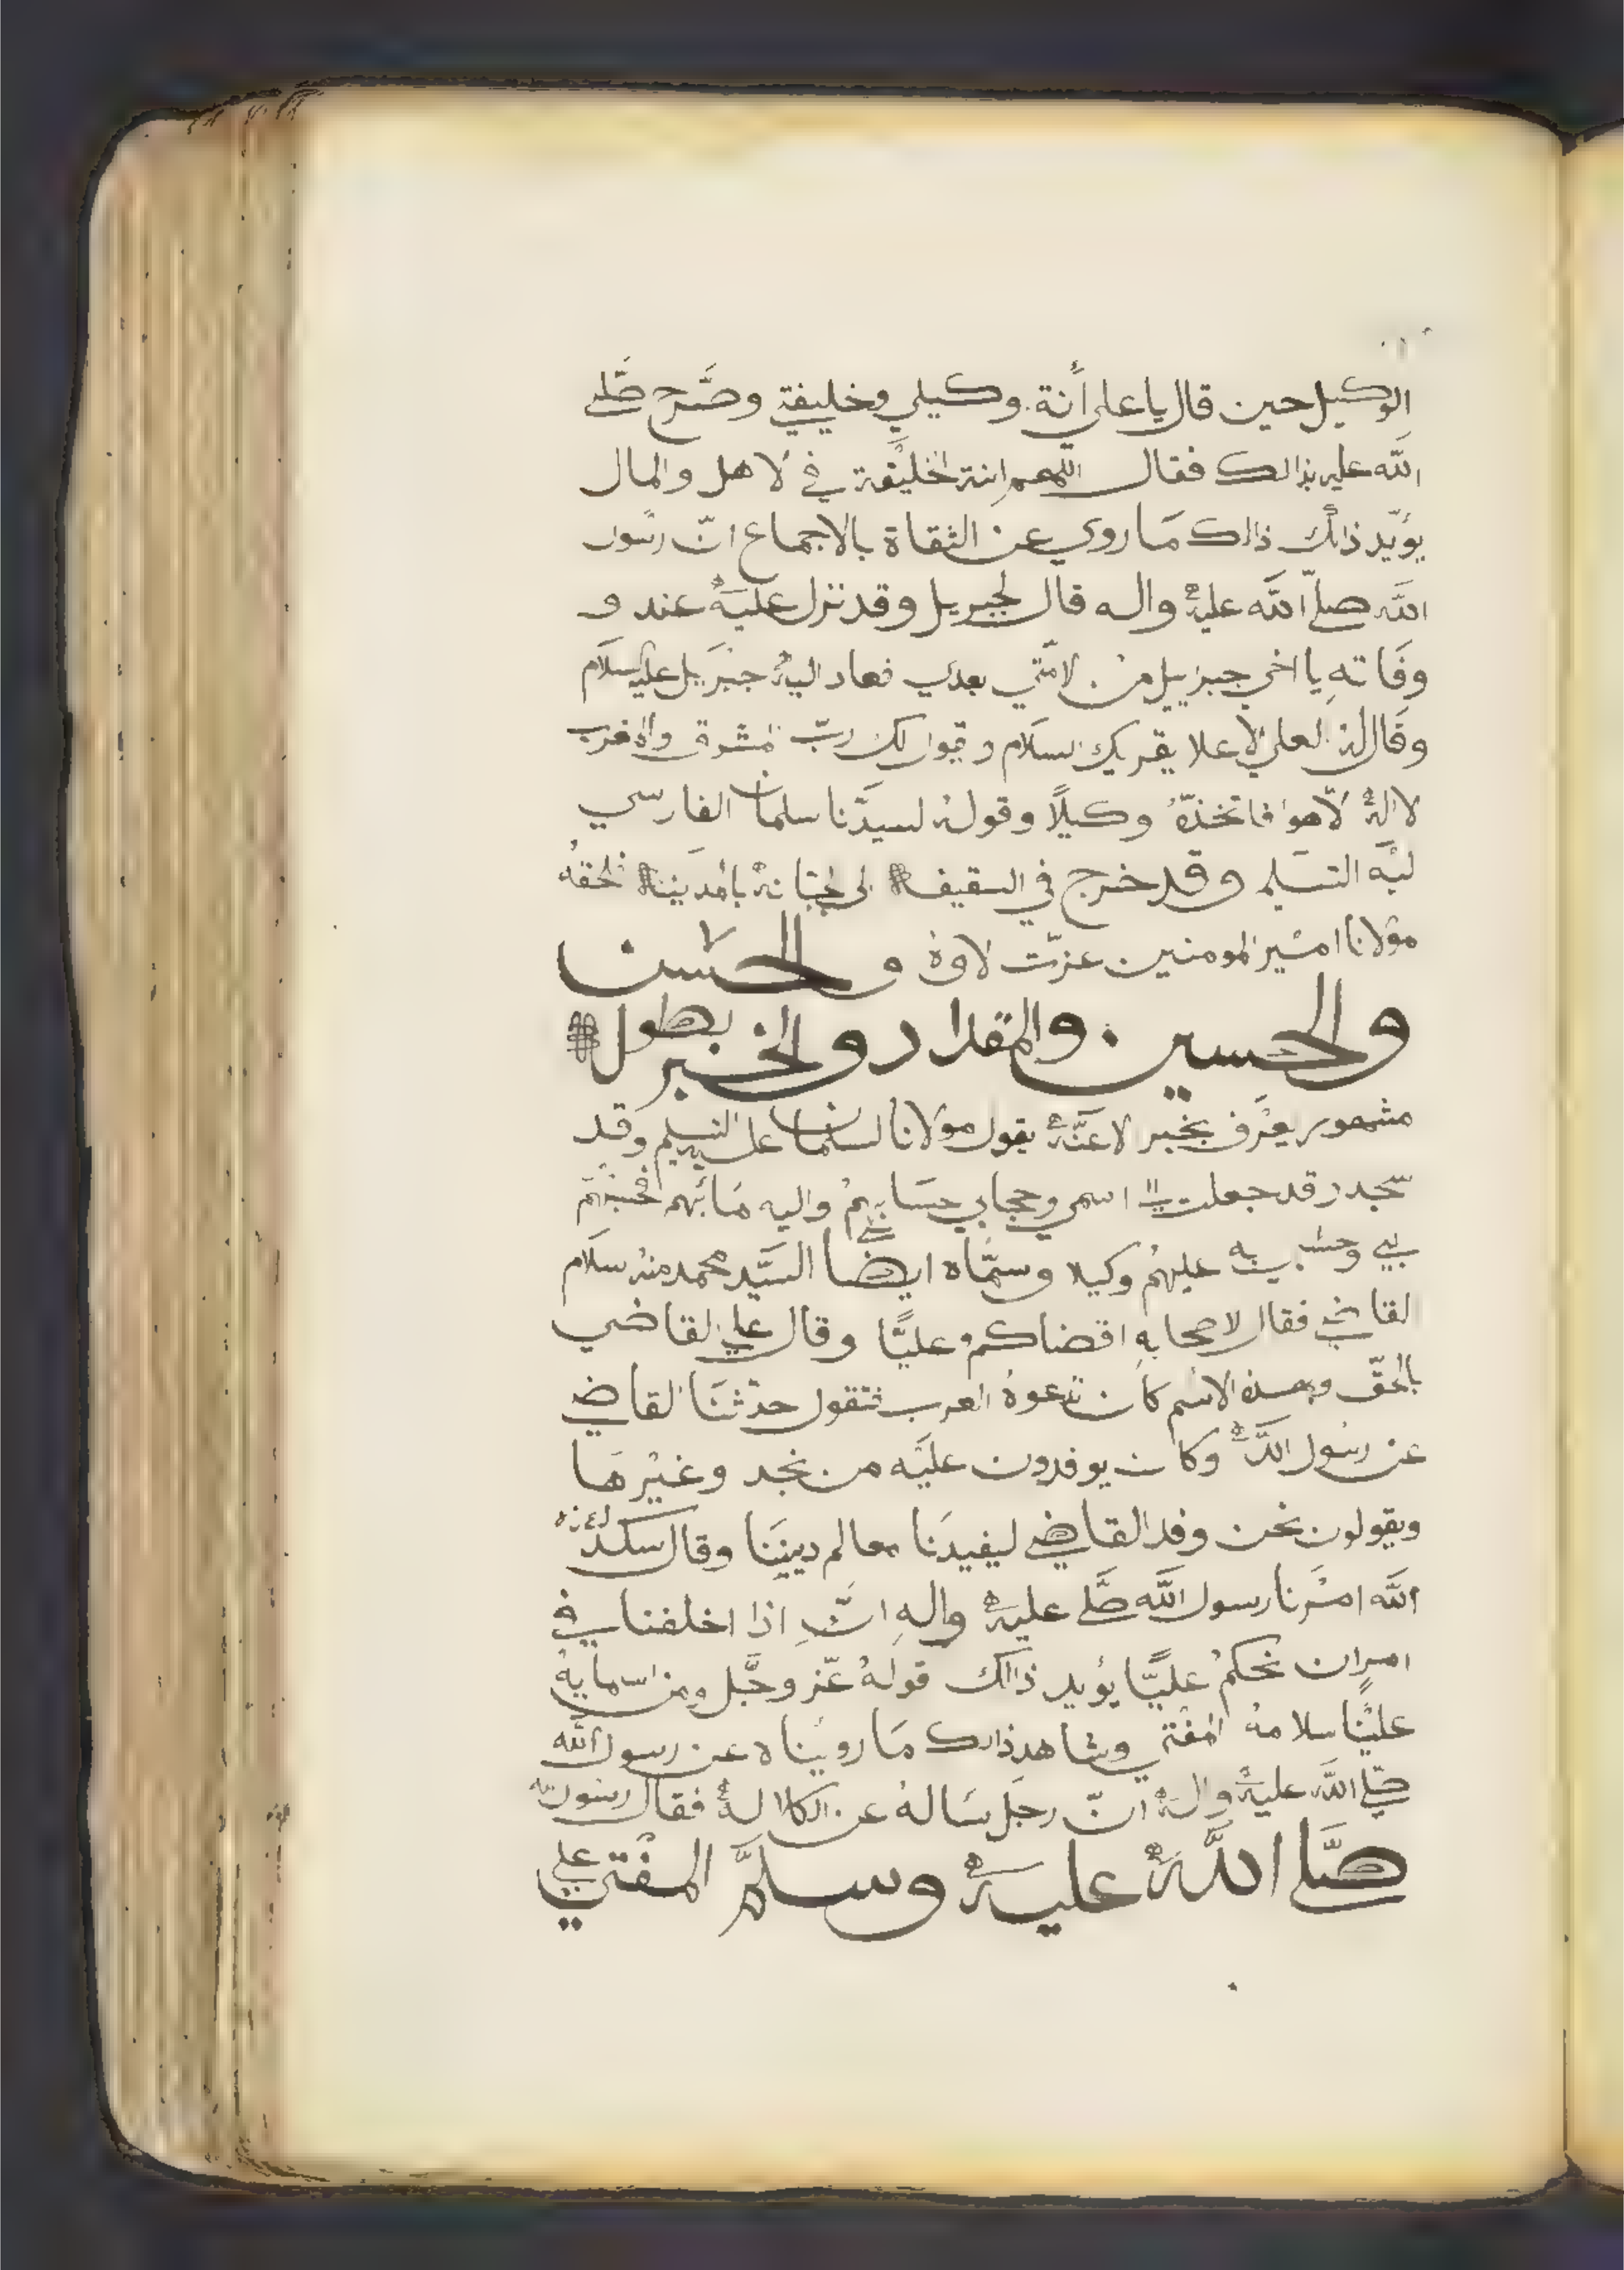 الوكيل حين قال يا علي أنة وكيلي وخليفتي وصَّرح صَّلى
اللَّه عليه بذالك فقال اللهم انتة الخليفة في لاهل والمال
يؤيّد ذالك ذالك مَا روي عن الثقاة بالاجماع انّ رسول
اللَّه صلّى اللَّه عليهُ واله قال لجبريل وقد نزل عليهُ عند و
وفَاتهِ يا اخي جبزييل منْ لامّتي بعدي فعاد اليهُ جبَريل عليه السلَام
وقَال لهُ العلي الاعلا يقريك السلَام وقول لك ربّ المشرق والمغرب
لا الهُ لّا هوا فاتخذهُّ وكيلًا وقولهُ لسيدَّنا سلمان الفارسي
ليَه التسَليم وقد خرج في السقيفه الى الجبّانهُ بالمدينه فلحقهُ
موَلانا اميَر المومنين عزّت لاوهُ والحسَن
والحسين والمقداد والخبر بطوله
مشهور يعرَف بخبر لاعنَّهُ يقول موَلانا لسلمان عليه التسليم وقد
سَجد وقد جعلت اسمي وحجابي حسَابهمْ واليه مَائبهم
بي وحسبي به عليهمْ وكيلا وسمَّاه ايضًا السَيّد محمد منهُ سلَام
القاضي فقال لاصحابهِ اقضاكم عليًّا وقال علي القاضي
بالحقّ وبهذه الاسْم كاَن تَدعوهُ العرب فتقول حدّثنَا القاضي
عن رسُول اللَّهُ وكان يوفدون عليَه من نجد وغيْرهَا
ويقولون نحن وفد القاضي ليفيدَنا معالم دينِنَا وقال
اللَّه امَرنا رسول اللَّه صَّلى عليهُ والهِ انّ اذا اخلفنا في
امرٍ ان نحكمْ عليًّا يؤيد ذالك قولهُ عّز وجَّل ومن اسمايهْ
عليْنَا سلامهُ المفْتي وشاهد ذالك مَا رويْناه عن رسول اللَّه
صّلى اللَّه عليهُ والهُ انّ رجَل سَالهُ عن الكلالهُ فقال رسُول الله
صَّلى اللَّهُ عليهُ وسلَّم المفْتي علي